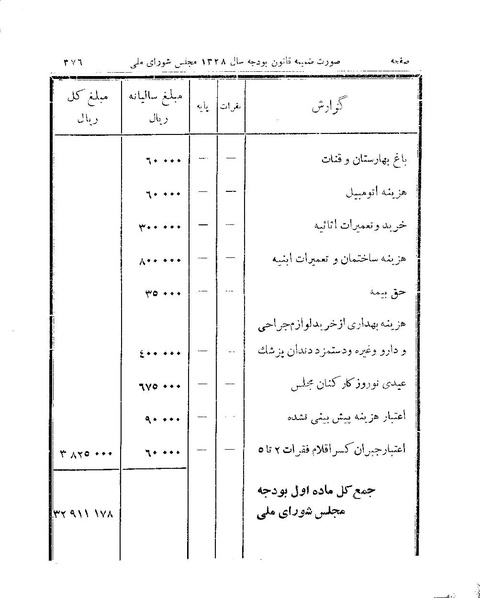 صفحه صورت ضمیمه قانون بودجه سال ۱۳۲۸ مجلس شورای ملی ۳۷۶
گزارش نفرات پایه مبلغ سالیانه ریال مبلغ کل ریال
باغ بهارستان و قنات — — ۶۰ ۰۰۰
هزینه اتومبیل — — ۶۰ ۰۰۰
خرید و تعمیرات اثاثیه — — ۳۰۰ ۰۰۰
هزینه ساختمان و تعمیرات ابنیه — — ۸۰۰ ۰۰۰
حق بیمه — — ۳۵ ۰۰۰
هزینه بهداری از خرید لوازم جراحی
و دارو وغیره ودستمزد دندان پزشك — — ۴۰۰ ۰۰۰
عیدی نوروز کارکنان مجلس — — ۶۷۵ ۰۰۰
اعتبار هزینه پیش بینی نشده — — ۹۰ ۰۰۰
اعتبار جبران کسر اقلام فقرات ۲ تا ۵ — — ۶۰ ۰۰۰ ۳ ۸۲۵ ۰۰۰
جمع کل ماده اول بودجه
مجلس شورای ملی ۳۲ ۹۱۱ ۱۷۸